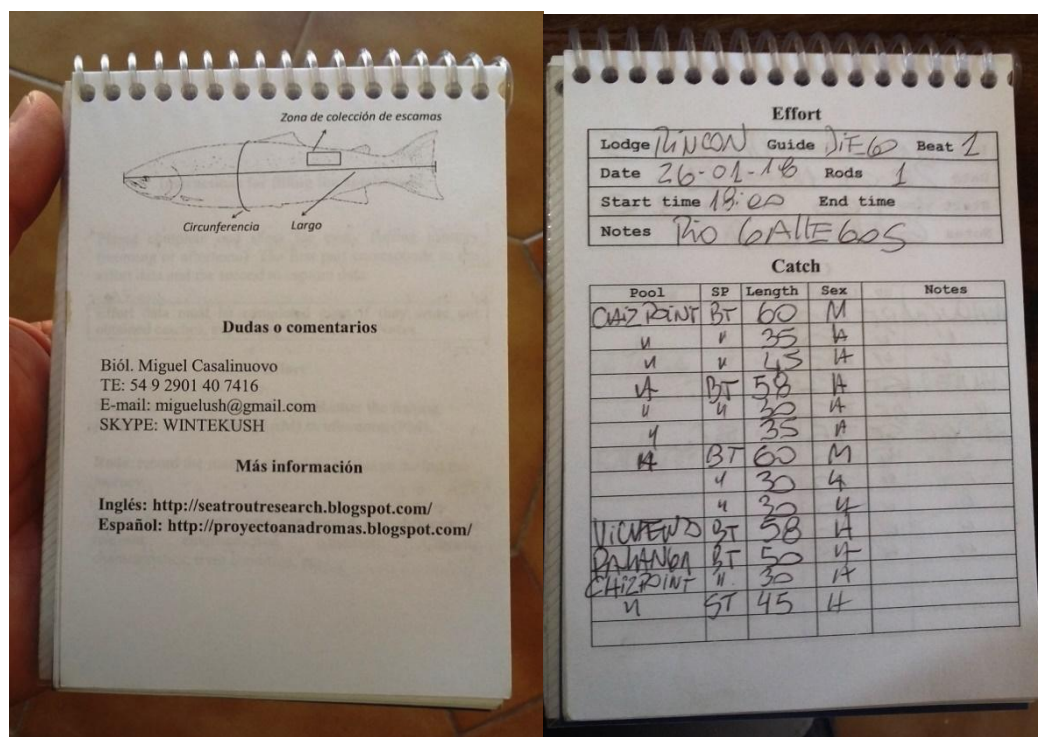 Zona de colección de escamas
Circunferencia Largo
Dudas o comentarios
Biól. Miguel Casalinuovo
TE: 54 9 2901 40 7416
E-mail: miguelush@gmail.com
SKYPE: WINTEKUSH
Más información
Inglés: http://seatroutresearch.blogspot.com/
Español: http://proyectoanadromas.blogspot.com/
Effort
Lodge RINCON Guide DiEGO Beat 1
Date 26-01-18 Rods 1
Start time End time
Notes RiO GAllEGOS
Catch
Pool SP Length Sex Notes
BT 60 M
" " 35 H
" " 45 H
" BT 58 H
" " 30 H
" 35 H
BT 60 M
" 30
" 30
BT 58 H
BT 50
CHiZPOiNT " 30 H
" ST 45 H